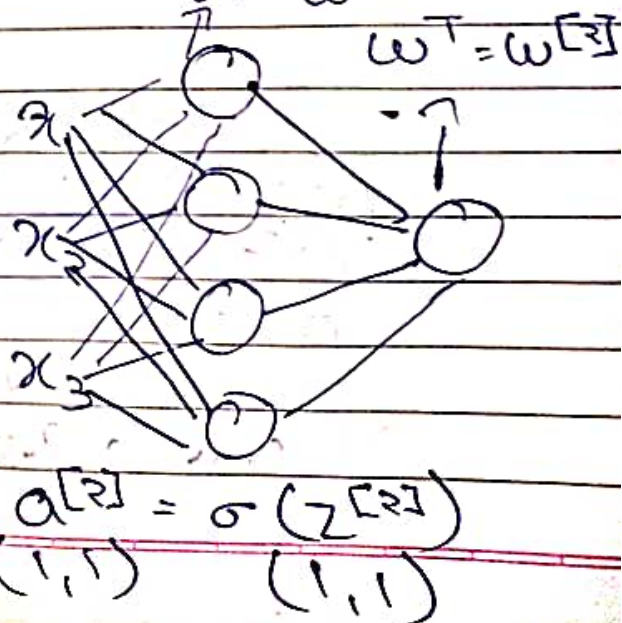 w^T = w^[2]
x
x_2
x_3
a^[2] = σ(z^[2])
(1,1) (1,1)